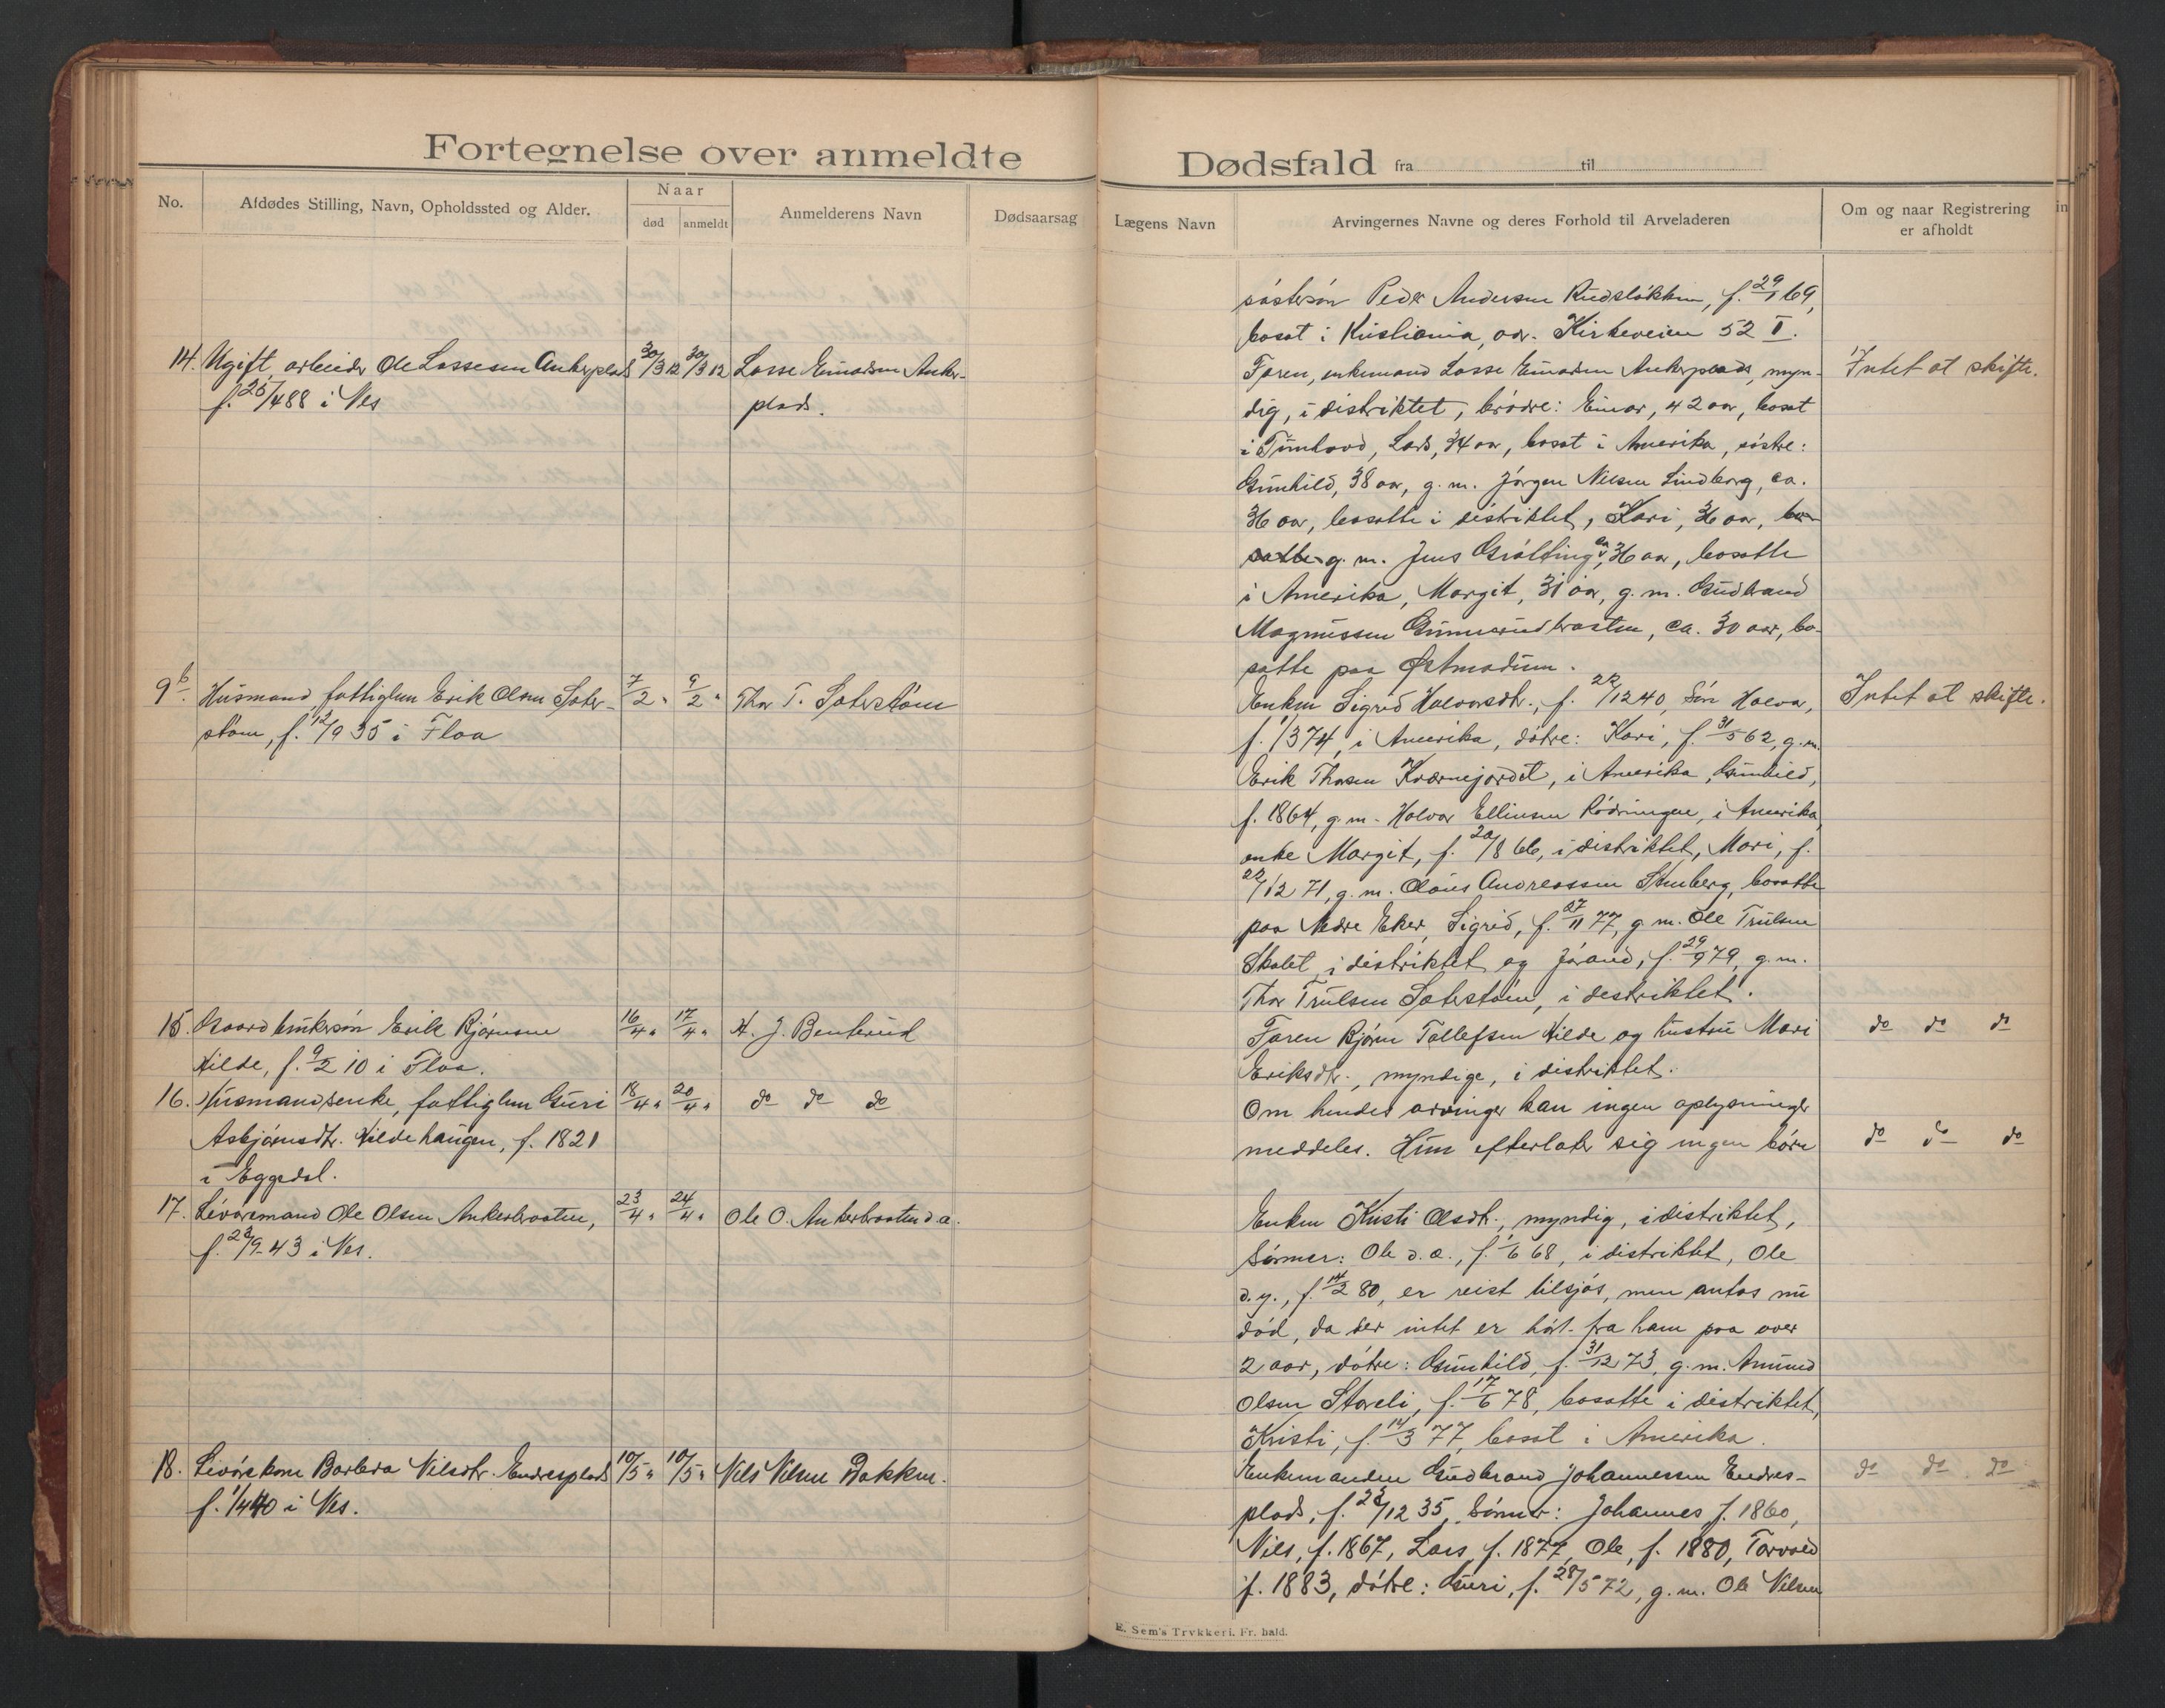 Fortegnelse over anmeldte
Dødsfald fra til
No.
Afdødes Stilling, Navn, Opholdssted og Alder.
Naar
død
anmeldt
Anmelderens Navn
Dødsaarsag
Lægens Navn
Arvingernes Navne og deres Forhold til Arveladeren
Om og naar Registrering
er afholdt
in
søstersøn Peder Andersen Rudsløkken, f. 29/1 69,
bosat i Kristiania, adr. Kirkeveien 52 II.
14. Ugift arbeider Ole Lassesen Ankerplads
f. 25/4 88 i Nes
30/3 12
30/3 12
Lasse Einarsen Anker-
plads.
Faren, enkemand Lasse Einarsen Ankerplads, myn-
dig, i distriktet, brødre: Einar, 42 aar, bosat
i Tinglood, Lars, 34 aar, bosat i Amerika, søstre:
Gunhild, 38 aar, g. m. Jørgen Nilsen Lindborg, ca.
36 aar, bosatte i distriktet, Kari, 36 aar, bo-
satte g. m. Jens Grølting, ca. 36 aar, bosatte
i Amerika, Margit, 31 aar, g. m. Gudbrand
Magnussen Gunnerudbraaten, ca. 30 aar, bo-
satte paa Østmodum.
Intet at skifte.
9 b. Husmand, fattiglem Erik Olsen Sater-
støen, f. 12/9 35 i Flaa
7/2 "
9/2 "
Thor T. Saterstøen
Enken Sigrid Halvorsdtr., f. 22/12 40, søn Halvor,
f. 1/3 74, i Amerika, døtre: Kari, f. 31/5 62, g. m.
Erik Thorsen Kværnejordet, i Amerika, Gunhild,
f. 1864, g. m. Halvor Ellingsen Rødningen, i Amerika,
enke Margit, f. 20/8 66, i distriktet, Mari, f.
22/12 71, g. m. Olaus Andreassen Stenberg, bosatte
paa Nedre Eker, Sigrid, f. 27/11 77, g. m. Ole Trulsen
Skalet, i distriktet og Jørand, f. 29/9 79, g. m.
Thor Trulsen Saterstøen, i destriktet.
Intet at skifte.
15. Gaardbrukersøn Erik Bjørnsen
Hilde, f. 9/2 10 i Flaa.
16/4 "
17/4 "
H. J. Benterud
Faren Bjørn Tollefsen Hilde og hustru Mari
Eriksdtr., myndige, i distriktet.
do do do
16. Husmandsenke, fattiglem Guri
Asbjørnsdtr. Hildehaugen, f. 1821
i Eggedal.
18/4 "
20/4 "
do do do
Om hendes arvinger kan ingen oplysninger
meddeles. Hun efterlater sig ingen børn
do do do
17. Livøresmand Ole Olsen Ankerbraaten,
f. 23/9 43 i Nes.
23/4 "
24/4 "
Ole O. Ankerbraaten d. æ.
Enken Kristi Olsdtr., myndig, i distriktet,
Sønner: Ole d. æ., f. 1/6 68, i distriktet, Ole
d. y., f. 14/2 80, er reist tilsjøs, men antas nu
død, da der intet er hørt fra ham paa over
2 aar, døtre: Gunhild, f. 31/12 73, g. m. Amund
Olsen Storeli, f. 17/6 78, bosatte i distriktet,
Kristi, f. 14/3 77, bosat i Amerika.
18. Livørskone Barbra Nilsdtr. Endresplads
f. 1/4 40 i Nes.
10/5 "
10/5 "
Nils Nilsen Bakken.
Enkemanden Gudbrand Johannessen Endres-
plads, f. 23/12 35, Sønner: Johannes, f. 1860,
Nils, f. 1867, Lars, f. 1877, Ole, f. 1880, Torvald
f. 1883, døtre: Guri, f. 28/5 72, g. m. Ole Nilsen
do do do
E. Sem's Trykkeri, Fr. hald.